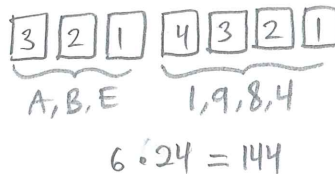 3 2 1 4 3 2 1
A, B, E 1, 9, 8, 4
6 · 24 = 144